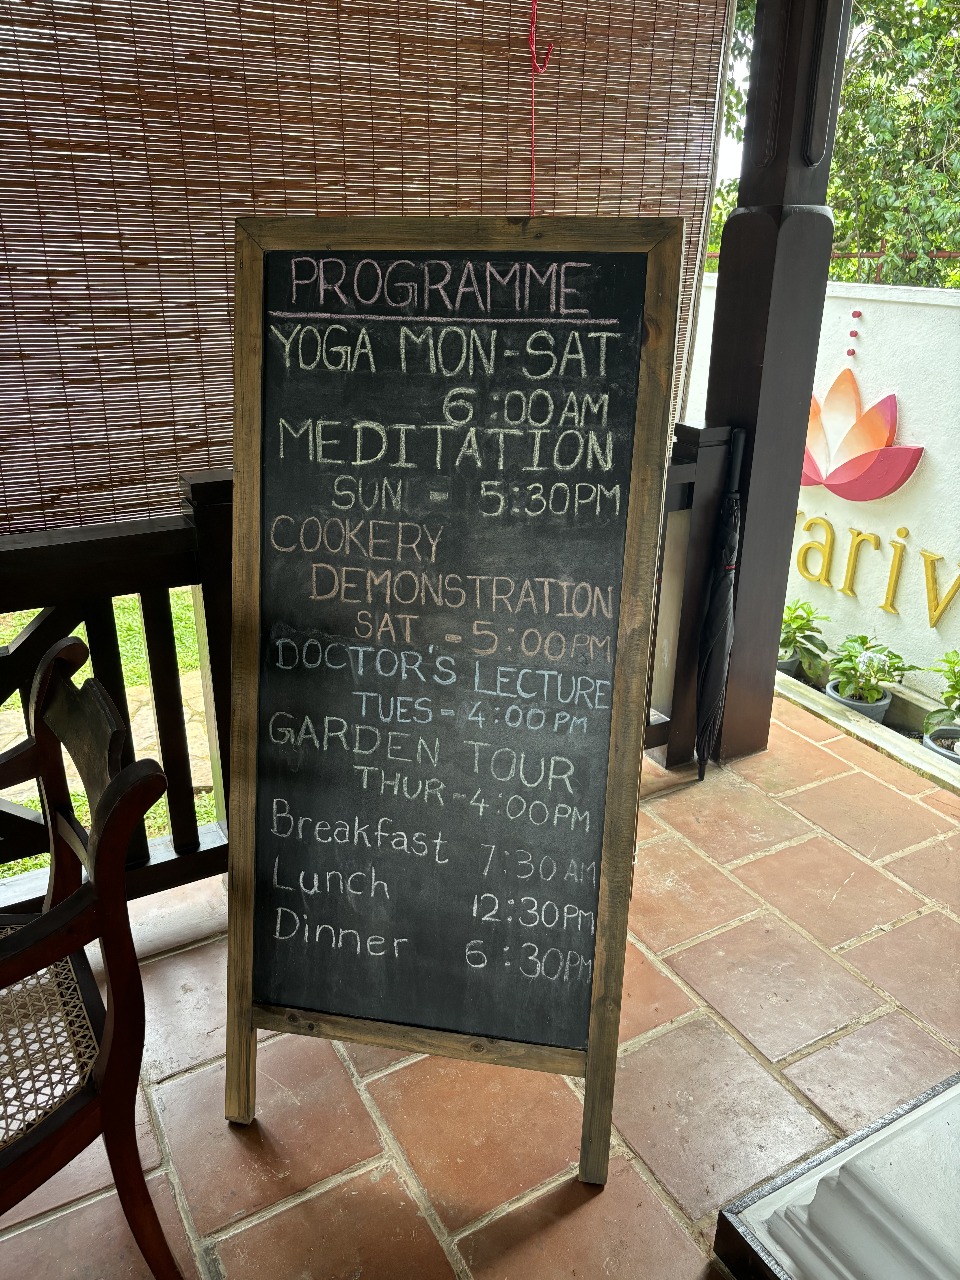 PROGRAMME
YOGA MON-SAT
6:00AM
MEDITATION
SUN - 5:30PM
COOKERY
DEMONSTRATION
SAT - 5:00PM
DOCTOR'S LECTURE
TUES - 4:00PM
GARDEN TOUR
THUR - 4:00PM
Breakfast 7:30AM
Lunch 12:30PM
Dinner 6:30PM